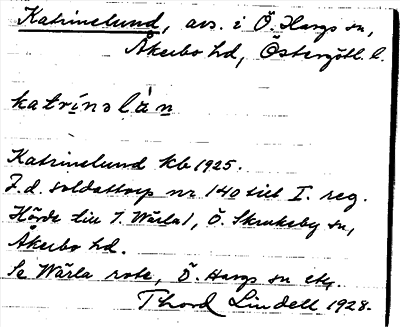 Katrinelund, avs. i Ö. Hargs sn,
Åkerbo hd, Östergötl. l.
katrínəlàn
Katrinelund kb 1925.
F.d. soldattorp nr 140 till I. reg.
Ö. Skrukeby sn,
Åkerbo hd.
Se Wärla rote, Ö. Hargs sn etc.
Thord Lindell 1928.